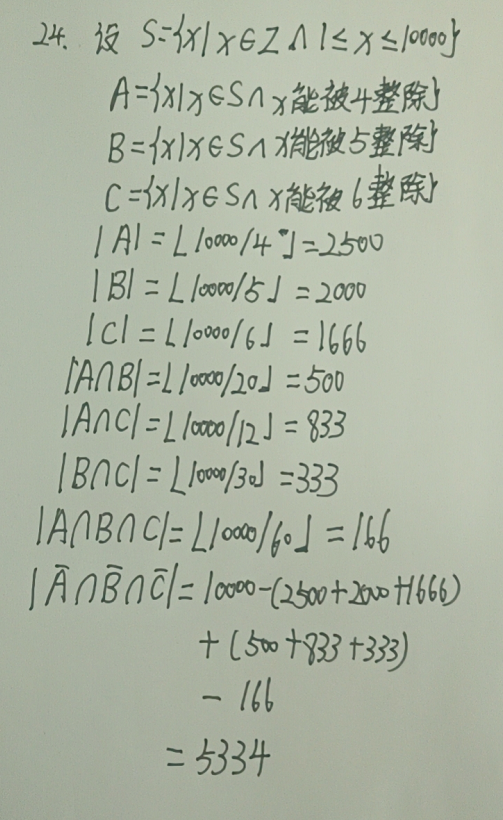 24. 设 S={x|x∈Z∧1≤x≤10000}
A={x|x∈S∧x能被4整除}
B={x|x∈S∧x能被5整除}
C={x|x∈S∧x能被6整除}
|A|=⌊10000/4⌋=2500
|B|=⌊10000/5⌋=2000
|C|=⌊10000/6⌋=1666
|A∩B|=⌊10000/20⌋=500
|A∩C|=⌊10000/12⌋=833
|B∩C|=⌊10000/30⌋=333
|A∩B∩C|=⌊10000/60⌋=166
|A̅∩B̅∩C̅|=10000-(2500+2000+1666)
+(500+833+333)
-166
=5334